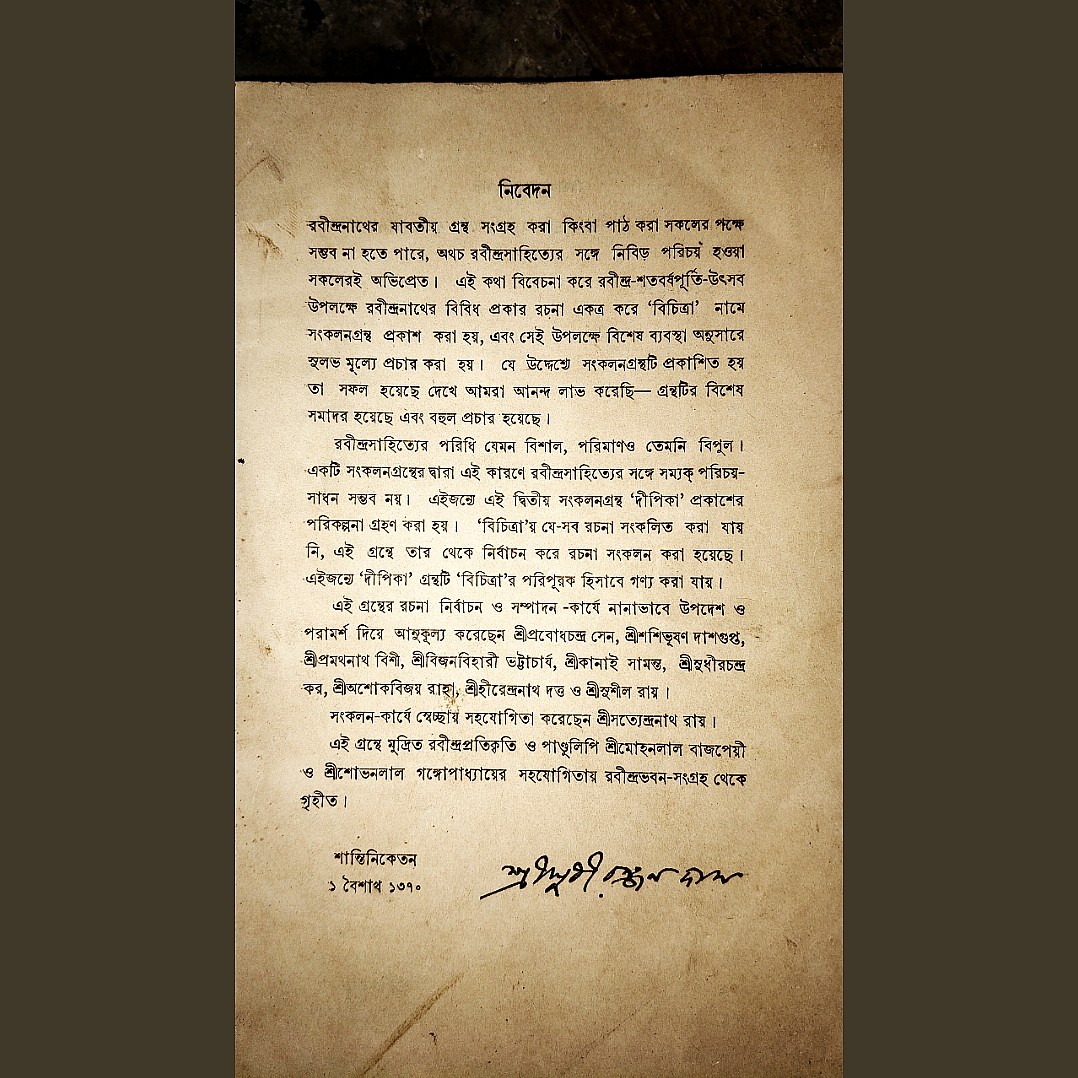 নিবেদন
রবীন্দ্রনাথের যাবতীয় গ্রন্থ সংগ্রহ করা কিংবা পাঠ করা সকলের পক্ষে
সম্ভব না হতে পারে, অথচ রবীন্দ্রসাহিত্যের সঙ্গে নিবিড় পরিচয় হওয়া
সকলেরই অভিপ্রেত। এই কথা বিবেচনা করে রবীন্দ্র-শতবর্ষপূর্তি-উৎসব
উপলক্ষে রবীন্দ্রনাথের বিবিধ প্রকার রচনা একত্র করে ‘বিচিত্রা’ নামে
সংকলনগ্রন্থ প্রকাশ করা হয়, এবং সেই উপলক্ষে বিশেষ ব্যবস্থা অনুসারে
সুলভ মূল্যে প্রচার করা হয়। যে উদ্দেশ্যে সংকলনগ্রন্থটি প্রকাশিত হয়
তা সফল হয়েছে দেখে আমরা আনন্দ লাভ করেছি— গ্রন্থটির বিশেষ
সমাদর হয়েছে এবং বহুল প্রচার হয়েছে।
রবীন্দ্রসাহিত্যের পরিধি যেমন বিশাল, পরিমাণও তেমনি বিপুল।
একটি সংকলনগ্রন্থের দ্বারা এই কারণে রবীন্দ্রসাহিত্যের সঙ্গে সম্যক্ পরিচয়-
সাধন সম্ভব নয়। এইজন্যে এই দ্বিতীয় সংকলনগ্রন্থ ‘দীপিকা’ প্রকাশের
পরিকল্পনা গ্রহণ করা হয়। ‘বিচিত্রা’য় যে-সব রচনা সংকলিত করা যায়
নি, এই গ্রন্থে তার থেকে নির্বাচন করে রচনা সংকলন করা হয়েছে।
এইজন্যে ‘দীপিকা’ গ্রন্থটি ‘বিচিত্রা’র পরিপূরক হিসাবে গণ্য করা যায়।
এই গ্রন্থের রচনা নির্বাচন ও সম্পাদন -কার্যে নানাভাবে উপদেশ ও
পরামর্শ দিয়ে আনুকূল্য করেছেন শ্রীপ্রবোধচন্দ্র সেন, শ্রীশশিভূষণ দাশগুপ্ত,
শ্রীপ্রমথনাথ বিশী, শ্রীবিজনবিহারী ভট্টাচার্য, শ্রীকানাই সামন্ত, শ্রীসুধীরচন্দ্র
কর, শ্রীঅশোকবিজয় রাহা, শ্রীহীরেন্দ্রনাথ দত্ত ও শ্রীসুশীল রায়।
সংকলন-কার্যে স্বেচ্ছায় সহযোগিতা করেছেন শ্রীসত্যেন্দ্রনাথ রায়।
এই গ্রন্থে মুদ্রিত রবীন্দ্রপ্রতিকৃতি ও পাণ্ডুলিপি শ্রীমোহনলাল বাজপেয়ী
ও শ্রীশোভনলাল গঙ্গোপাধ্যায়ের সহযোগিতায় রবীন্দ্রভবন-সংগ্রহ থেকে
গৃহীত।
শান্তিনিকেতন
১ বৈশাখ ১৩৭০
শ্রীসুধীরঞ্জন দাস